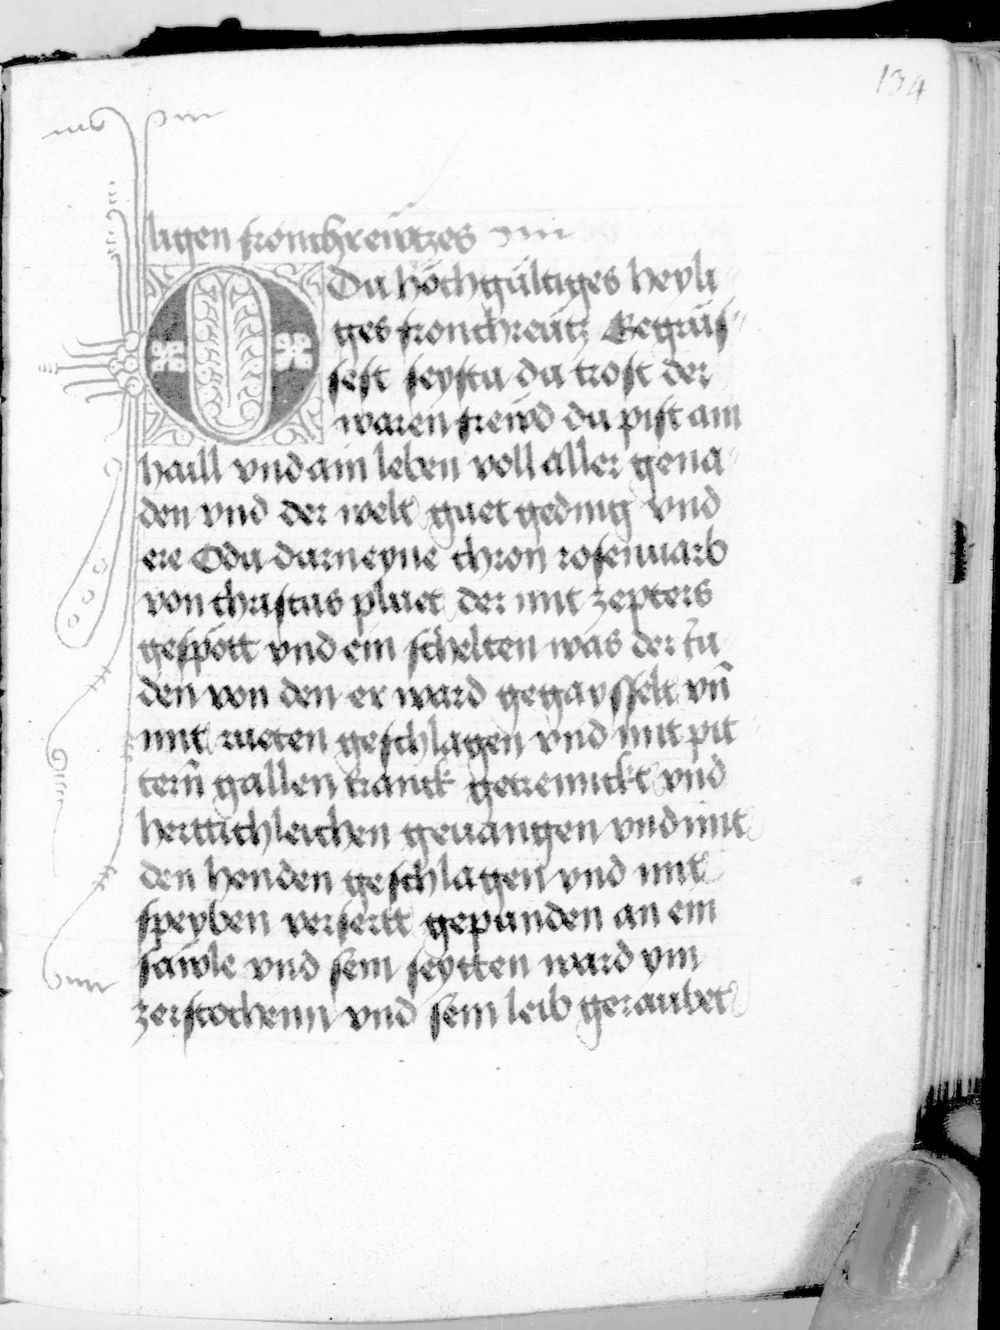 134
ligen fronchreẅtzes
O Du hochgültiges heyli
ges fronchreütz Gegrüs
sest seystu du trost der
waren freẅd du pist ain
haill vnd ain leben voll aller gena
den vnd der welt guet geding vnd
ere O du darneyne thron rosenuarb
von christus pluet der mit zepters
gespött vnd ein schelten was der iu
den von den er ward gegaysselt vn̄
mit rueten geschlagen vnd mit pit
tern̄ gallen tranck getrennckt vnd
herttichleichen geuangen vnd mit
den henden geschlagen vnd mit
speyben versertt gepunden an ein
saẅle vnd sein seytten ward ym
zerstochenn vnd sein leib geraubet